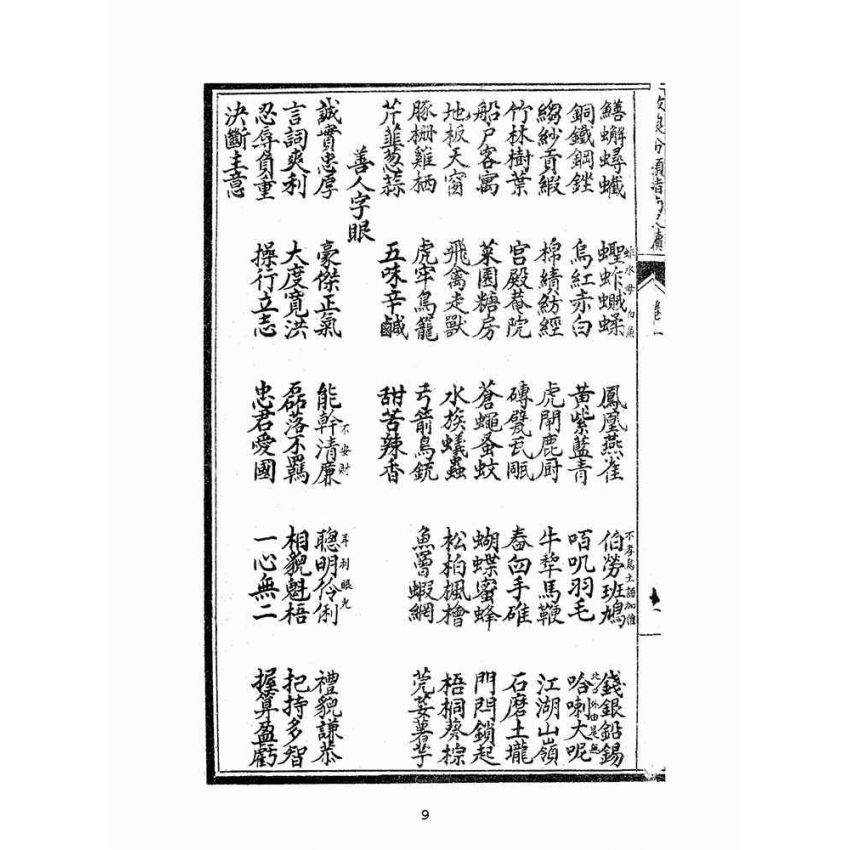 鱔蠏蟳蠘 蟶蚱蠘蝚 鳳凰燕雀 伯勞班鳩 錢銀鉛錫
蚱水母 白魚 不孝鳥土語加隹
銅鐵鋼銼 烏紅赤白 黃紫藍青 咟叽羽毛 哈喇大呢
縐紗貢緞 棉績紡經 虎閘鹿厨 牛犂馬鞭 江湖山嶺
竹林樹葉 宮殿菴院 磚甓瓦瓾 舂臼手碓 石磨土壠
船户客寓 菜園糖房 蒼蠅蚤蚊 蝴蝶蜜蜂 門閂鎖起
地板天窗 飛禽走獸 水族蟻蟲 松柏楓檜 梧桐葵棕
豚柵雞栖 虎牢鳥籠 弓箭鳥銃 魚罾蝦網 芫荽薯芋
芹韮葱蒜 五味辛鹹 甜苦辣香
善人字眼
誠實忠厚 豪傑正氣 能幹清廉 聰明伶俐 禮貌謙恭
不安財 耳利眼光
言詞爽利 大度寬洪 磊落不羈 相貌魁梧 把持多智
忍辱負重 操行立志 忠君愛國 一心無二 握算盈虧
決斷主意
9